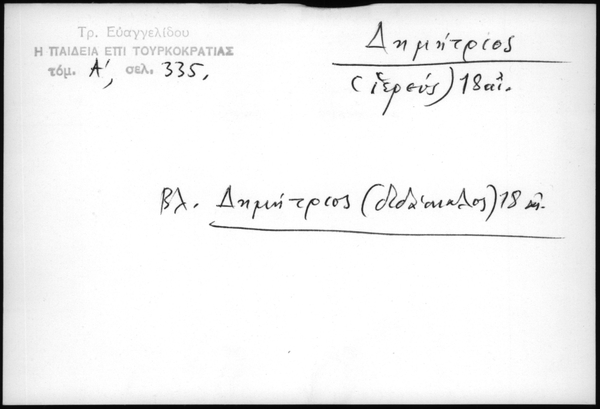 Τρ. Εὐαγγελίδου
Η ΠΑΙΔΕΙΑ ΕΠΙ ΤΟΥΡΚΟΚΡΑΤΙΑΣ
τόμ. Α', σελ. 335.
Δημήτριος
(ἱερεύς) 18 αἰ.
Βλ. Δημήτριος (διδάσκαλος) 18 αἰ.